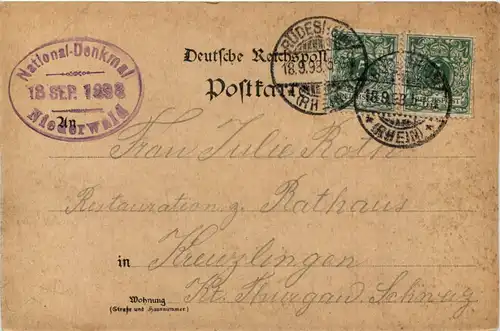 National-Denkmal
18 SEP. 1898
Niederwald
Deutsche Reichspost
Postkarte
RÜDESHEIM
18.9.98
(RHEIN)
18.9.98
* (RHEIN) *
An
Frau Julie Roth
Restauration z. Rathaus
in Kreuzlingen
Kt. Thurgau Schweiz
Wohnung
(Straße und Hausnummer)